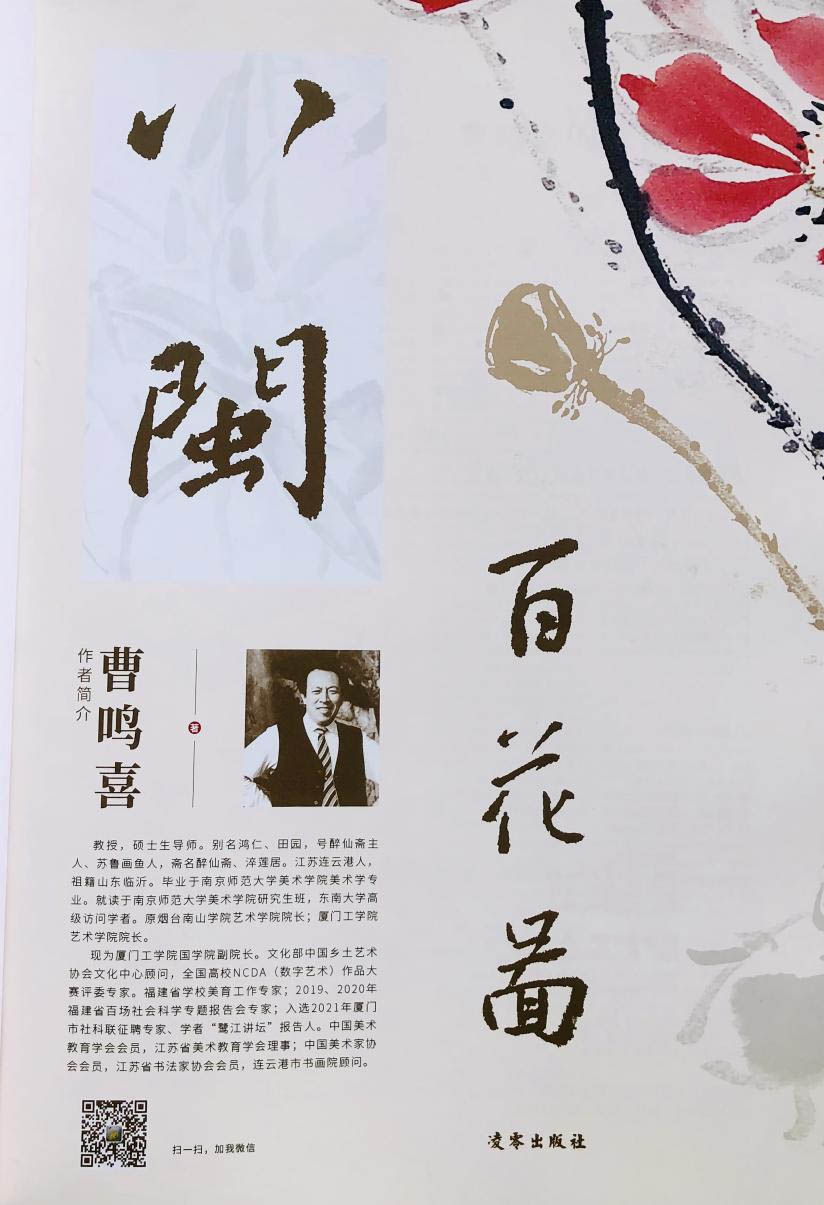 八
閩
百
花
圖
作者简介
曹鸣喜
著
教授，硕士生导师。别名鸿仁、田园，号醉仙斋主
人、苏鲁画鱼人，斋名醉仙斋、淬莲居。江苏连云港人，
祖籍山东临沂。毕业于南京师范大学美术学院美术学专
业。就读于南京师范大学美术学院研究生班，东南大学高
级访问学者。原烟台南山学院艺术学院院长；厦门工学院
艺术学院院长。
现为厦门工学院国学院副院长。文化部中国乡土艺术
协会文化中心顾问，全国高校NCDA（数字艺术）作品大
赛评委专家。福建省学校美育工作专家；2019、2020年
福建省百场社会科学专题报告会专家；入选2021年厦门
市社科联征聘专家、学者“鹭江讲坛”报告人。中国美术
教育学会会员，江苏省美术教育学会理事；中国美术家协
会会员，江苏省书法家协会会员，连云港市书画院顾问。
扫一扫，加我微信
凌零出版社